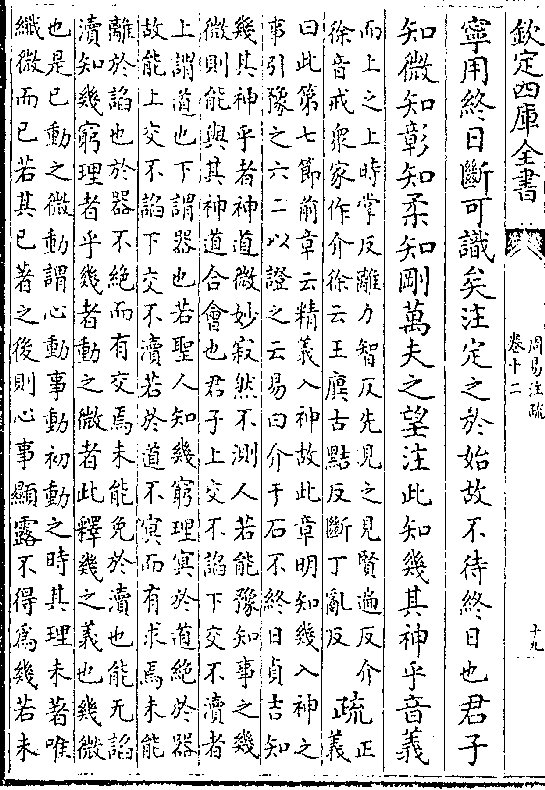 欽定四庫全書
周易注疏
卷十二
十九
寧用終日斷可識矣注定之於始故不待終日也君子
知微知彰知柔知剛萬夫之望注此知幾其神乎音義
而上之上時掌反離力智反先見之見賢遍反介
徐音戒衆家作介徐云王廙古黠反斷丁亂反
疏
正
義
曰此第七節前章云精義入神故此章明知幾入神之
事引豫之六二以證之云易曰介于石不終日貞吉知
幾其神乎者神道微妙寂然不測人若能豫知事之幾
微則能與其神道合會也君子上交不諂下交不瀆者
上謂道也下謂器也若聖人知幾窮理冥於道絶於器
故能上交不諂下交不瀆若於道不冥而有求焉未能
離於諂也於器不絶而有交焉未能免於瀆也能无諂
瀆知幾窮理者乎幾者動之微者此釋幾之義也幾微
也是已動之微動謂心動事動初動之時其理未著唯
纖微而已若其已著之後則心事顯露不得爲幾若未